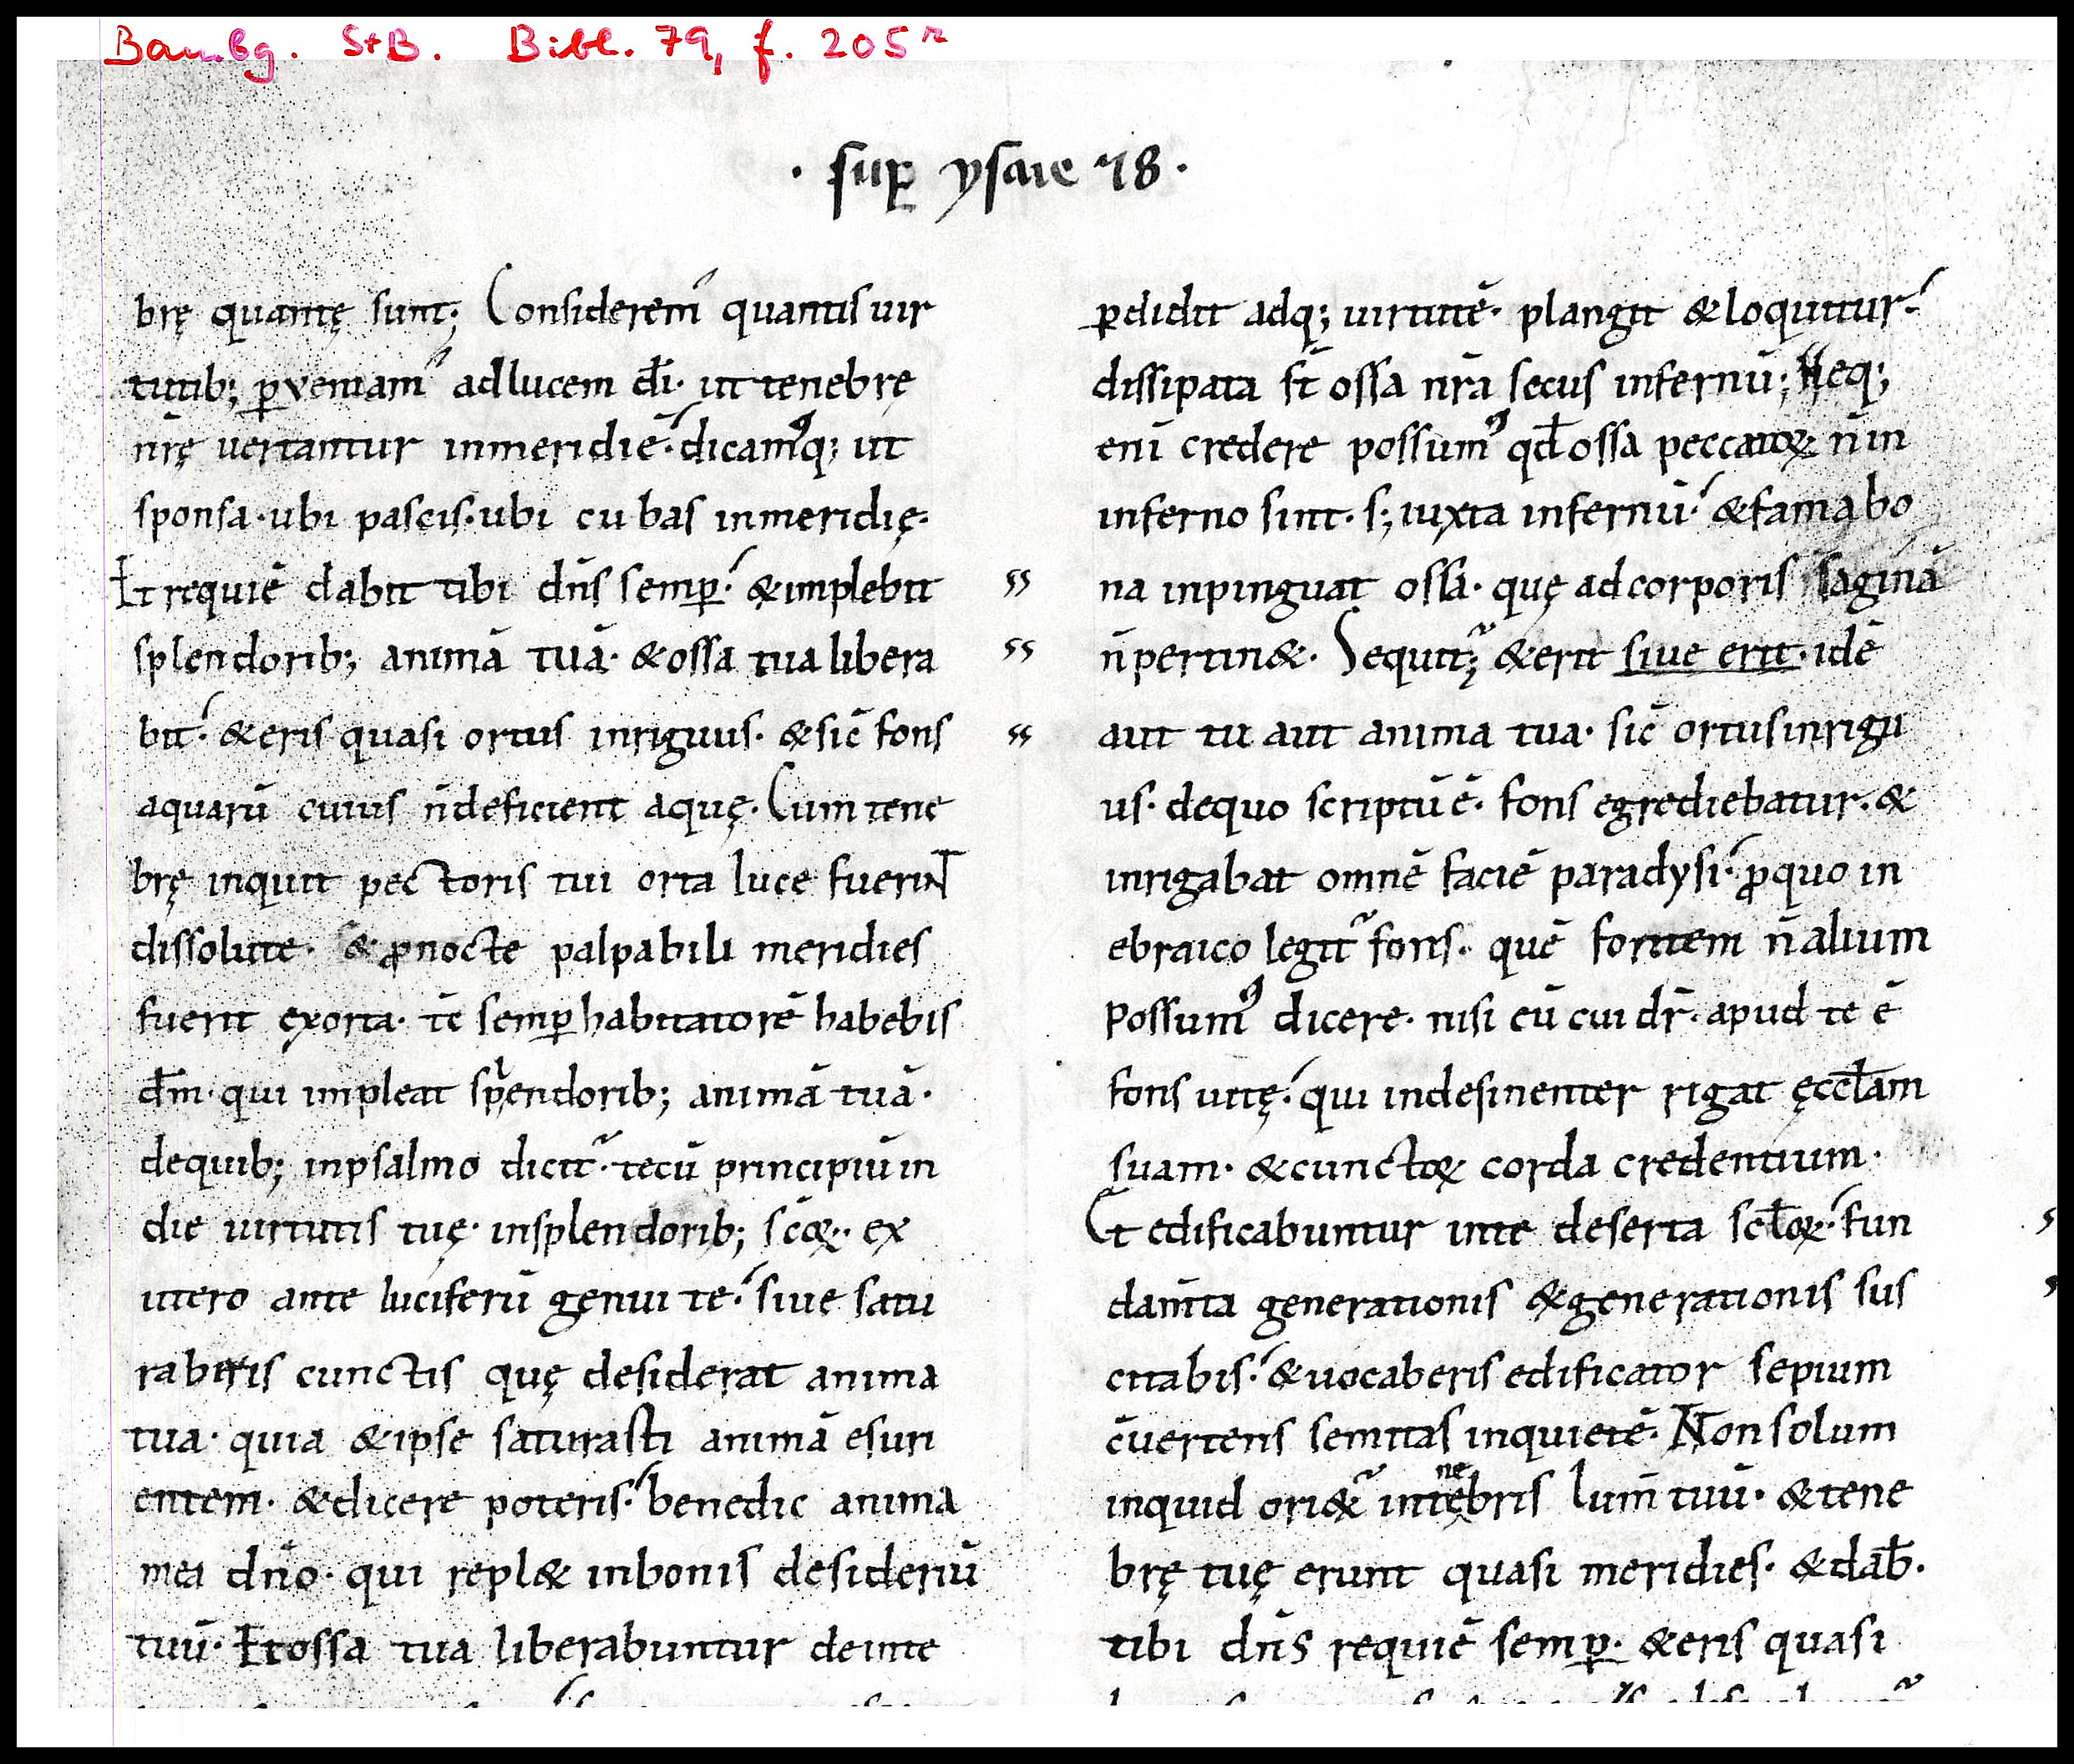 Bambg. StB. Bibl. 79, f. 205r
· suꝑ ysaie 18 ·
brę quantę sunt; Considerem᾽ quantis uir
tutib; ꝑveniam᾽ ad lucem d̄i· ut tenebrę
nr̄ę uertantur in meridiē·́ dicamꝰq; ut
sponsa· ubi pascis· ubi cubas in meridię·
Et requiē dabit tibi dn̄s semꝑ·́ & implebit
splendorib; animā tuā· & ossa tua libera
bit·́ & eris quasi ortus inriguus· & sic̄ fons
aquarū cuius n̄ deficient aquę· Cum tene
brę inquit pectoris tui orta luce fuerint
dissolute· & ꝓ nocte palpabili meridies
fuerit exorta· tē semꝑ habitatorē habebis
dm̄· qui impleat sp̓endorib; animā tuā·
de quib; in psalmo dicit᷑· tecū principiū in
die uirtutis tuę· in splendorib; sc̄oꝝ· ex
utero ante luciferū genui te·́ siue satu
raberis cunctis quę desiderat anima
tua· quia & ipse saturasti animā esuri
entem· & dicere poteris·́ benedic anima
mea dn̄o· qui repl& in bonis desideriū
tuū· Et ossa tua liberabuntur de inte
ꝑdidit adq; uirtutē· plangit & loquitur·́
dissipata st̄ ossa nr̄a secus infernū; Neq;
eni̅ credere possumꝰ qd̄ ossa peccatoꝝ n̄ in
inferno sint· s; iuxta infernū·́ & fama bo
na inpinguat ossa· quę ad corporis saginā
n̄ pertin&· Sequit᷑; & erit siue erit· idē
aut tu aut anima tua· sic̄ ortus inrigu
us· de quo scriptū ē· fons egrediebatur· &
inrigabat omnē faciē paradysi·́ ꝓ quo in
ebraico legit᷑ fons· quē fontem n̄ alium
possumꝰ dicere· nisi eū cui dr̄· apud te ē
fons uitę·́ qui indesinenter rigat ęccl̄am
suam· & cunctoꝝ corda credentium·
Et edificabuntur in te deserta scl̄oꝝ·́ fun
dam̄ta generationis & generationis sus
citabis·́ & uocaberis edificator sepium
c̄uertens semitas in quietē· Non solum
inquid ori&᷑ in tenębris lum̄ tuū· & tene
brę tuę erunt quasi meridies· & dab̄·
tibi dn̄s requiē semꝑ· & eris quasi